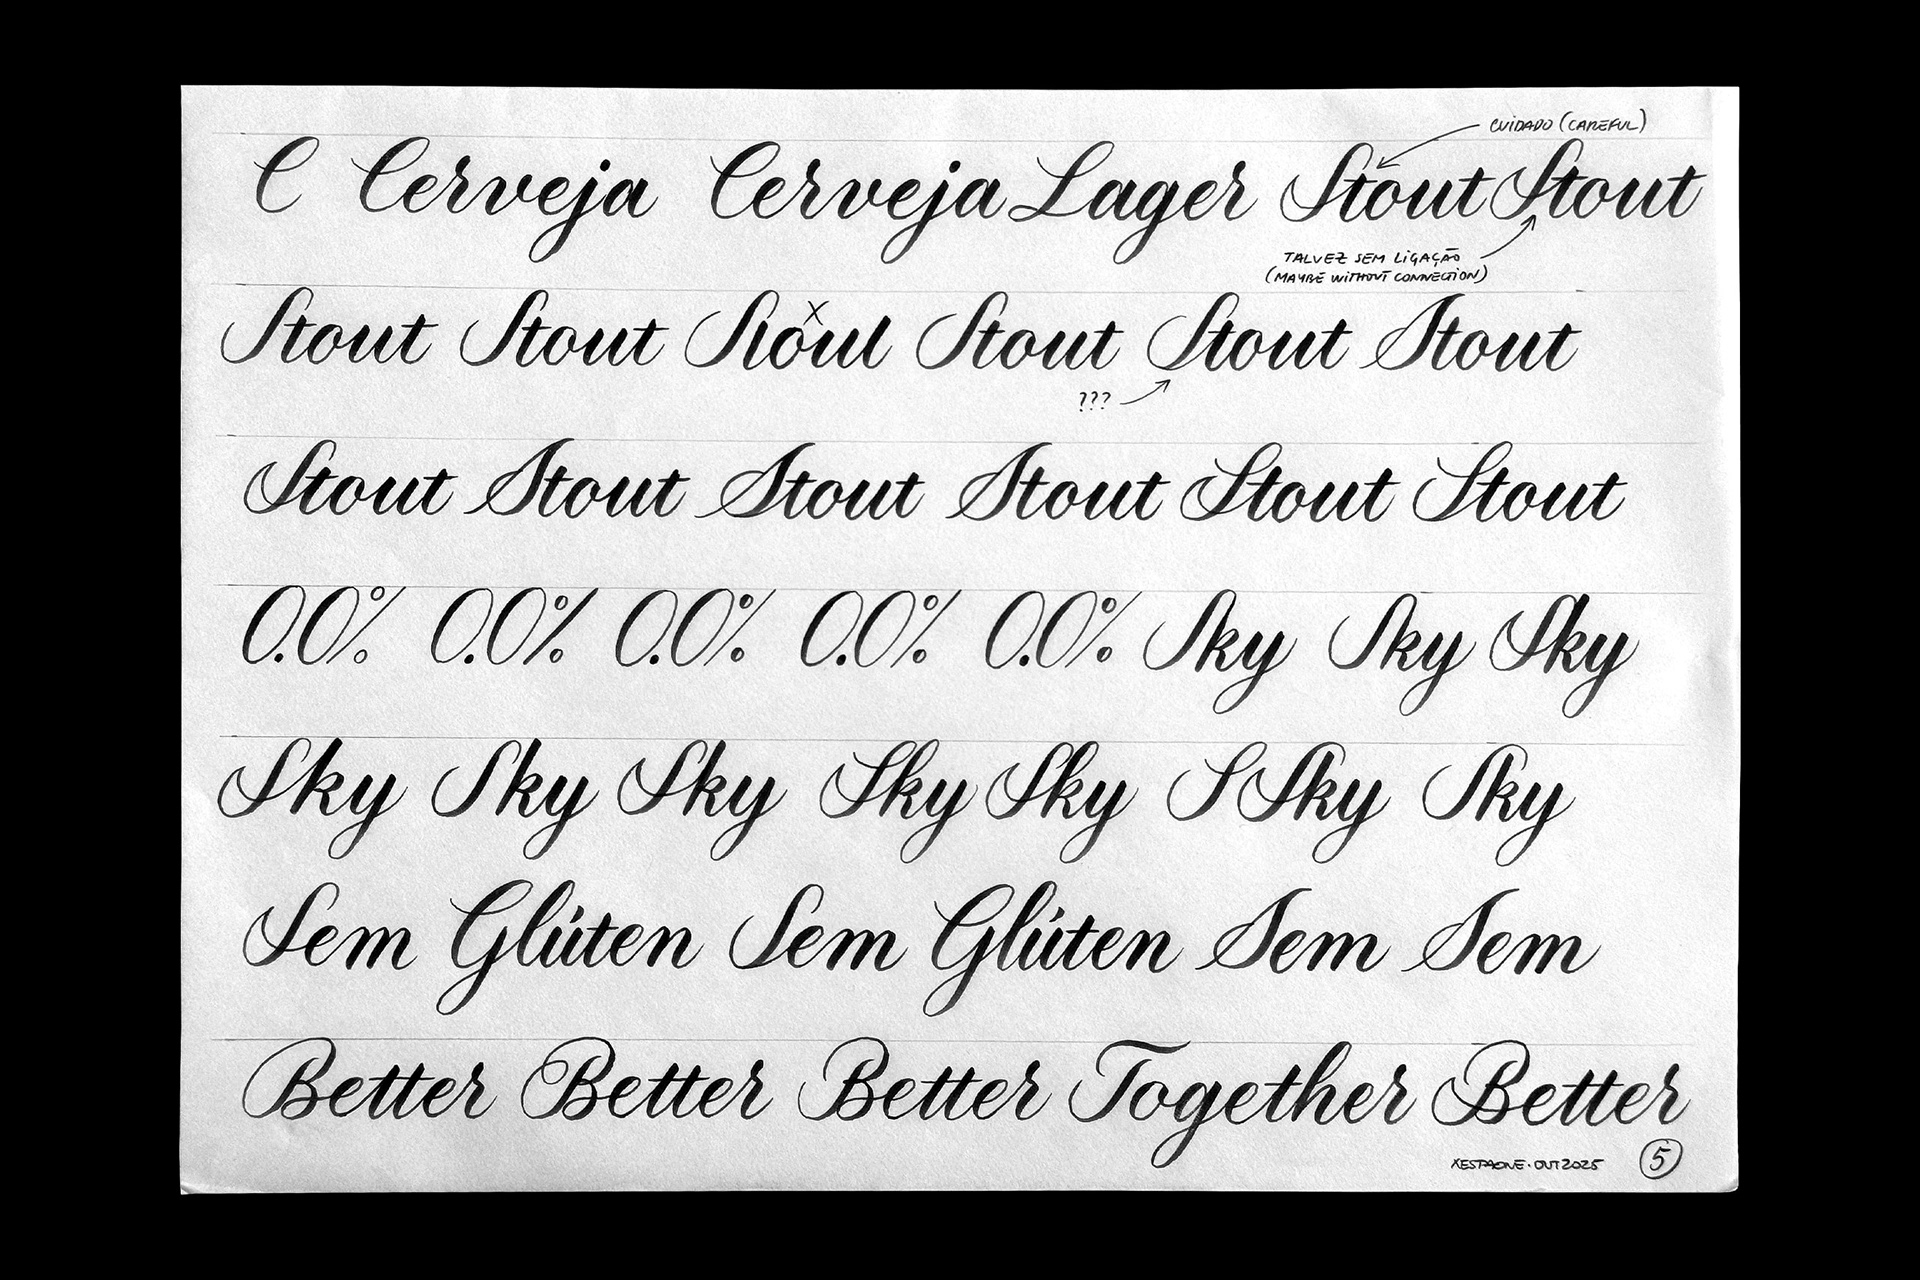 CUIDADO (CAREFUL)
C Cerveja Cerveja Lager Stout Stout
TALVEZ SEM LIGAÇÃO
(MAYBE WITHOUT CONNECTION)
Stout Stout Sloul Stout Stout Stout
x
???
Stout Stout Stout Stout Stout Stout
0.0% 0.0% 0.0% 0.0% 0.0% Sky Sky Sky
Sky Sky Sky Sky Sky S Sky Sky
Sem Glúten Sem Glúten Sem Sem
Better Better Better Together Better
XESTAONE. OUT 2025
5